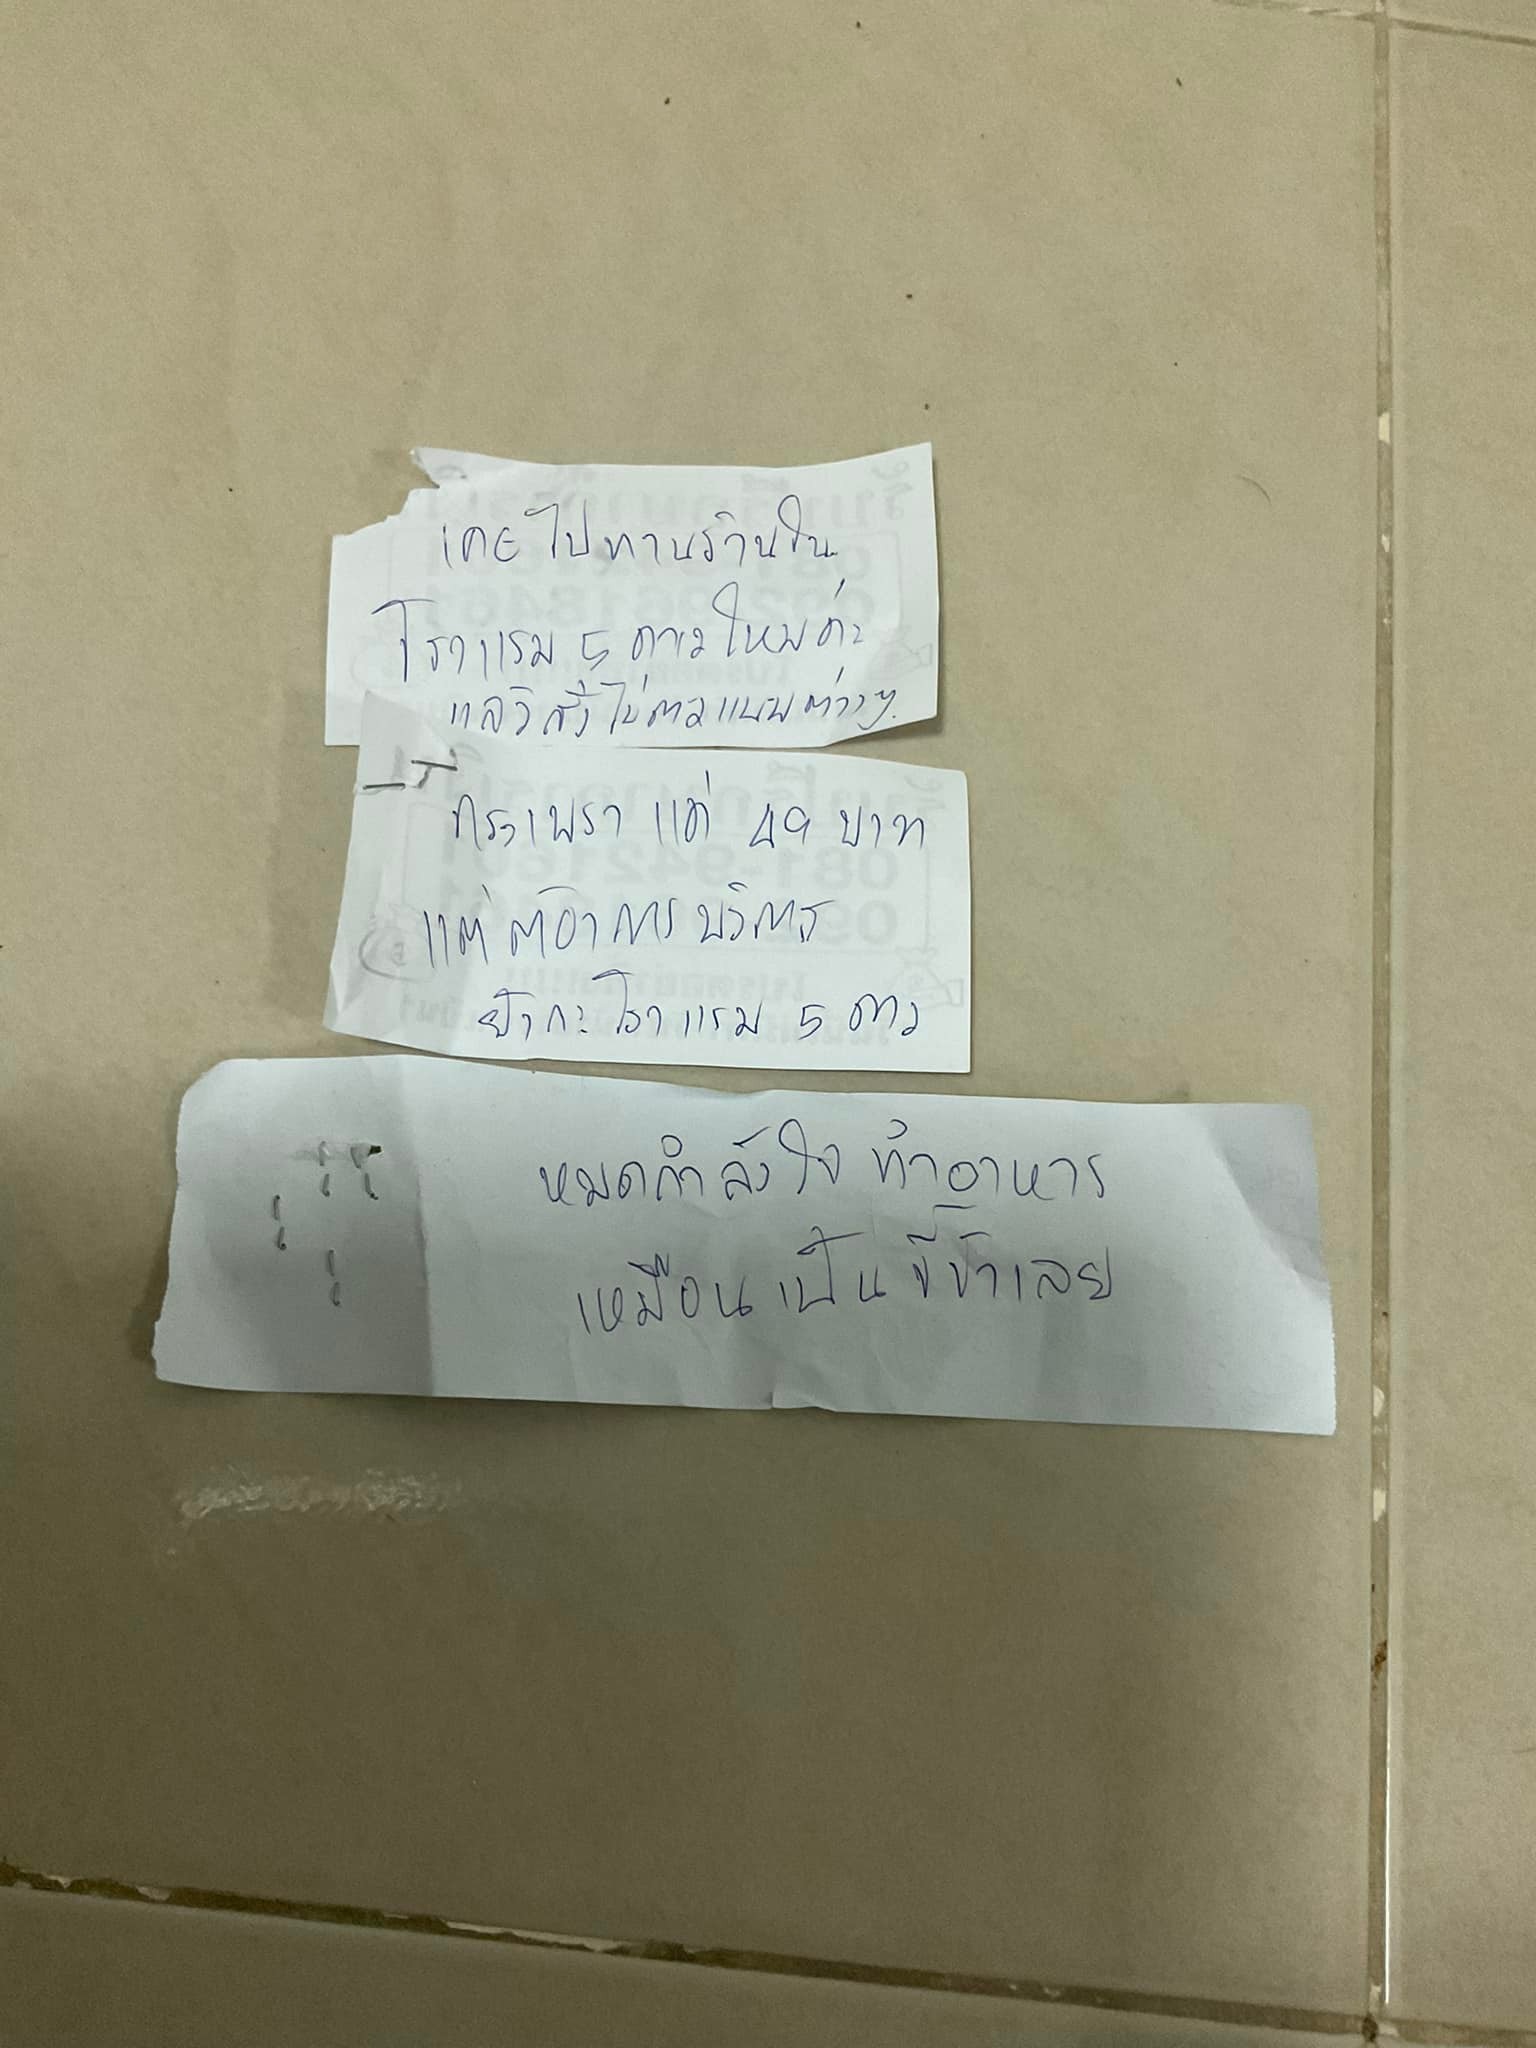 เคยไปทานร้านใน
โรงแรม 5 ดาวไหมค่ะ
แล้วสั่งไข่ดาวแบบต่างๆ
กระเพรา แค่ 49 บาท
แต่ต้องการบริการ
ยังกะโรงแรม 5 ดาว
หมดกำลังใจทำอาหาร
เหมือนเป็นขี้ข้าเลย